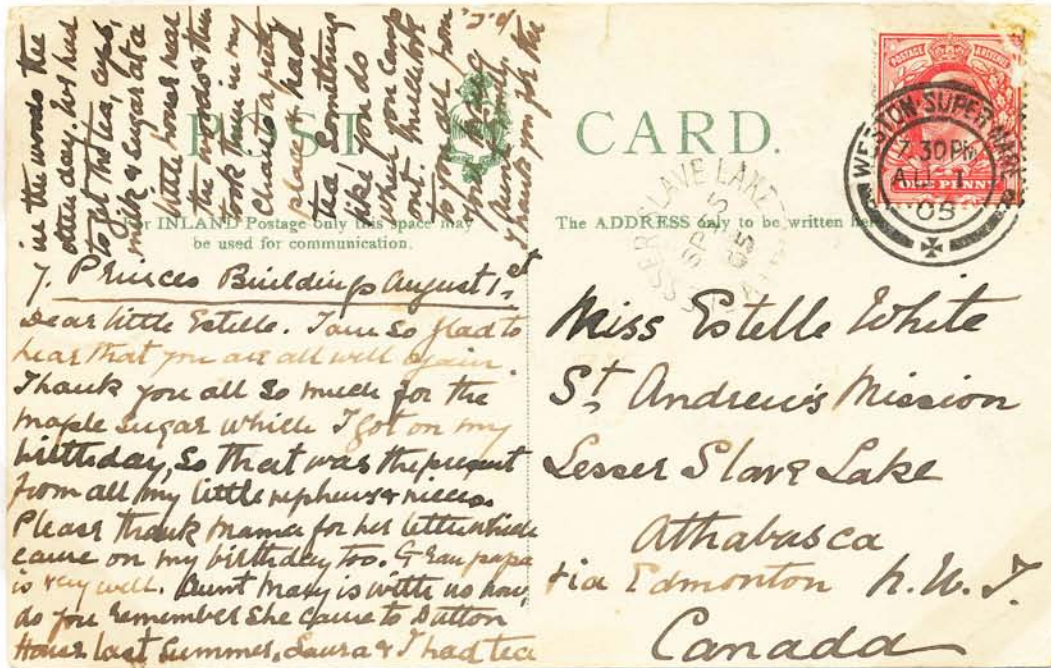 POST CARD.
For INLAND Postage only this space may
be used for communication.
The ADDRESS only to be written here.
POSTAGE REVENUE
ONE PENNY
WESTON-SUPER-MARE
7.30PM
AU 1
05
LESSER SLAVE LAKE
SP 5
05
7. Princes Buildings August 1st
Dear little Estelle. I am so glad to
hear that you are all well again.
Thank you all so much for the
maple sugar which I got on my
birthday, so that was the present
from all my little nephews & nieces.
Please thank Mama for her letter which
came on my birthday too. Granpapa
is very well. Aunt Mary is with us now,
do you remember she came to Dutton
House last Summer, Laura & I had tea
in the woods the
other day. We had
to get hot tea, cups,
milk & sugar at a
little house near
the woods & then
took them in my
chair to a pretty
place & had
tea, Something
like you do
when you camp
out. Much love
to you all from
your loving
Aunt Emily.
Thank you for the
p.c.
Miss Estelle White
St. Andrew's Mission
Lesser Slave Lake
Athabasca
via Edmonton N.W.T.
Canada